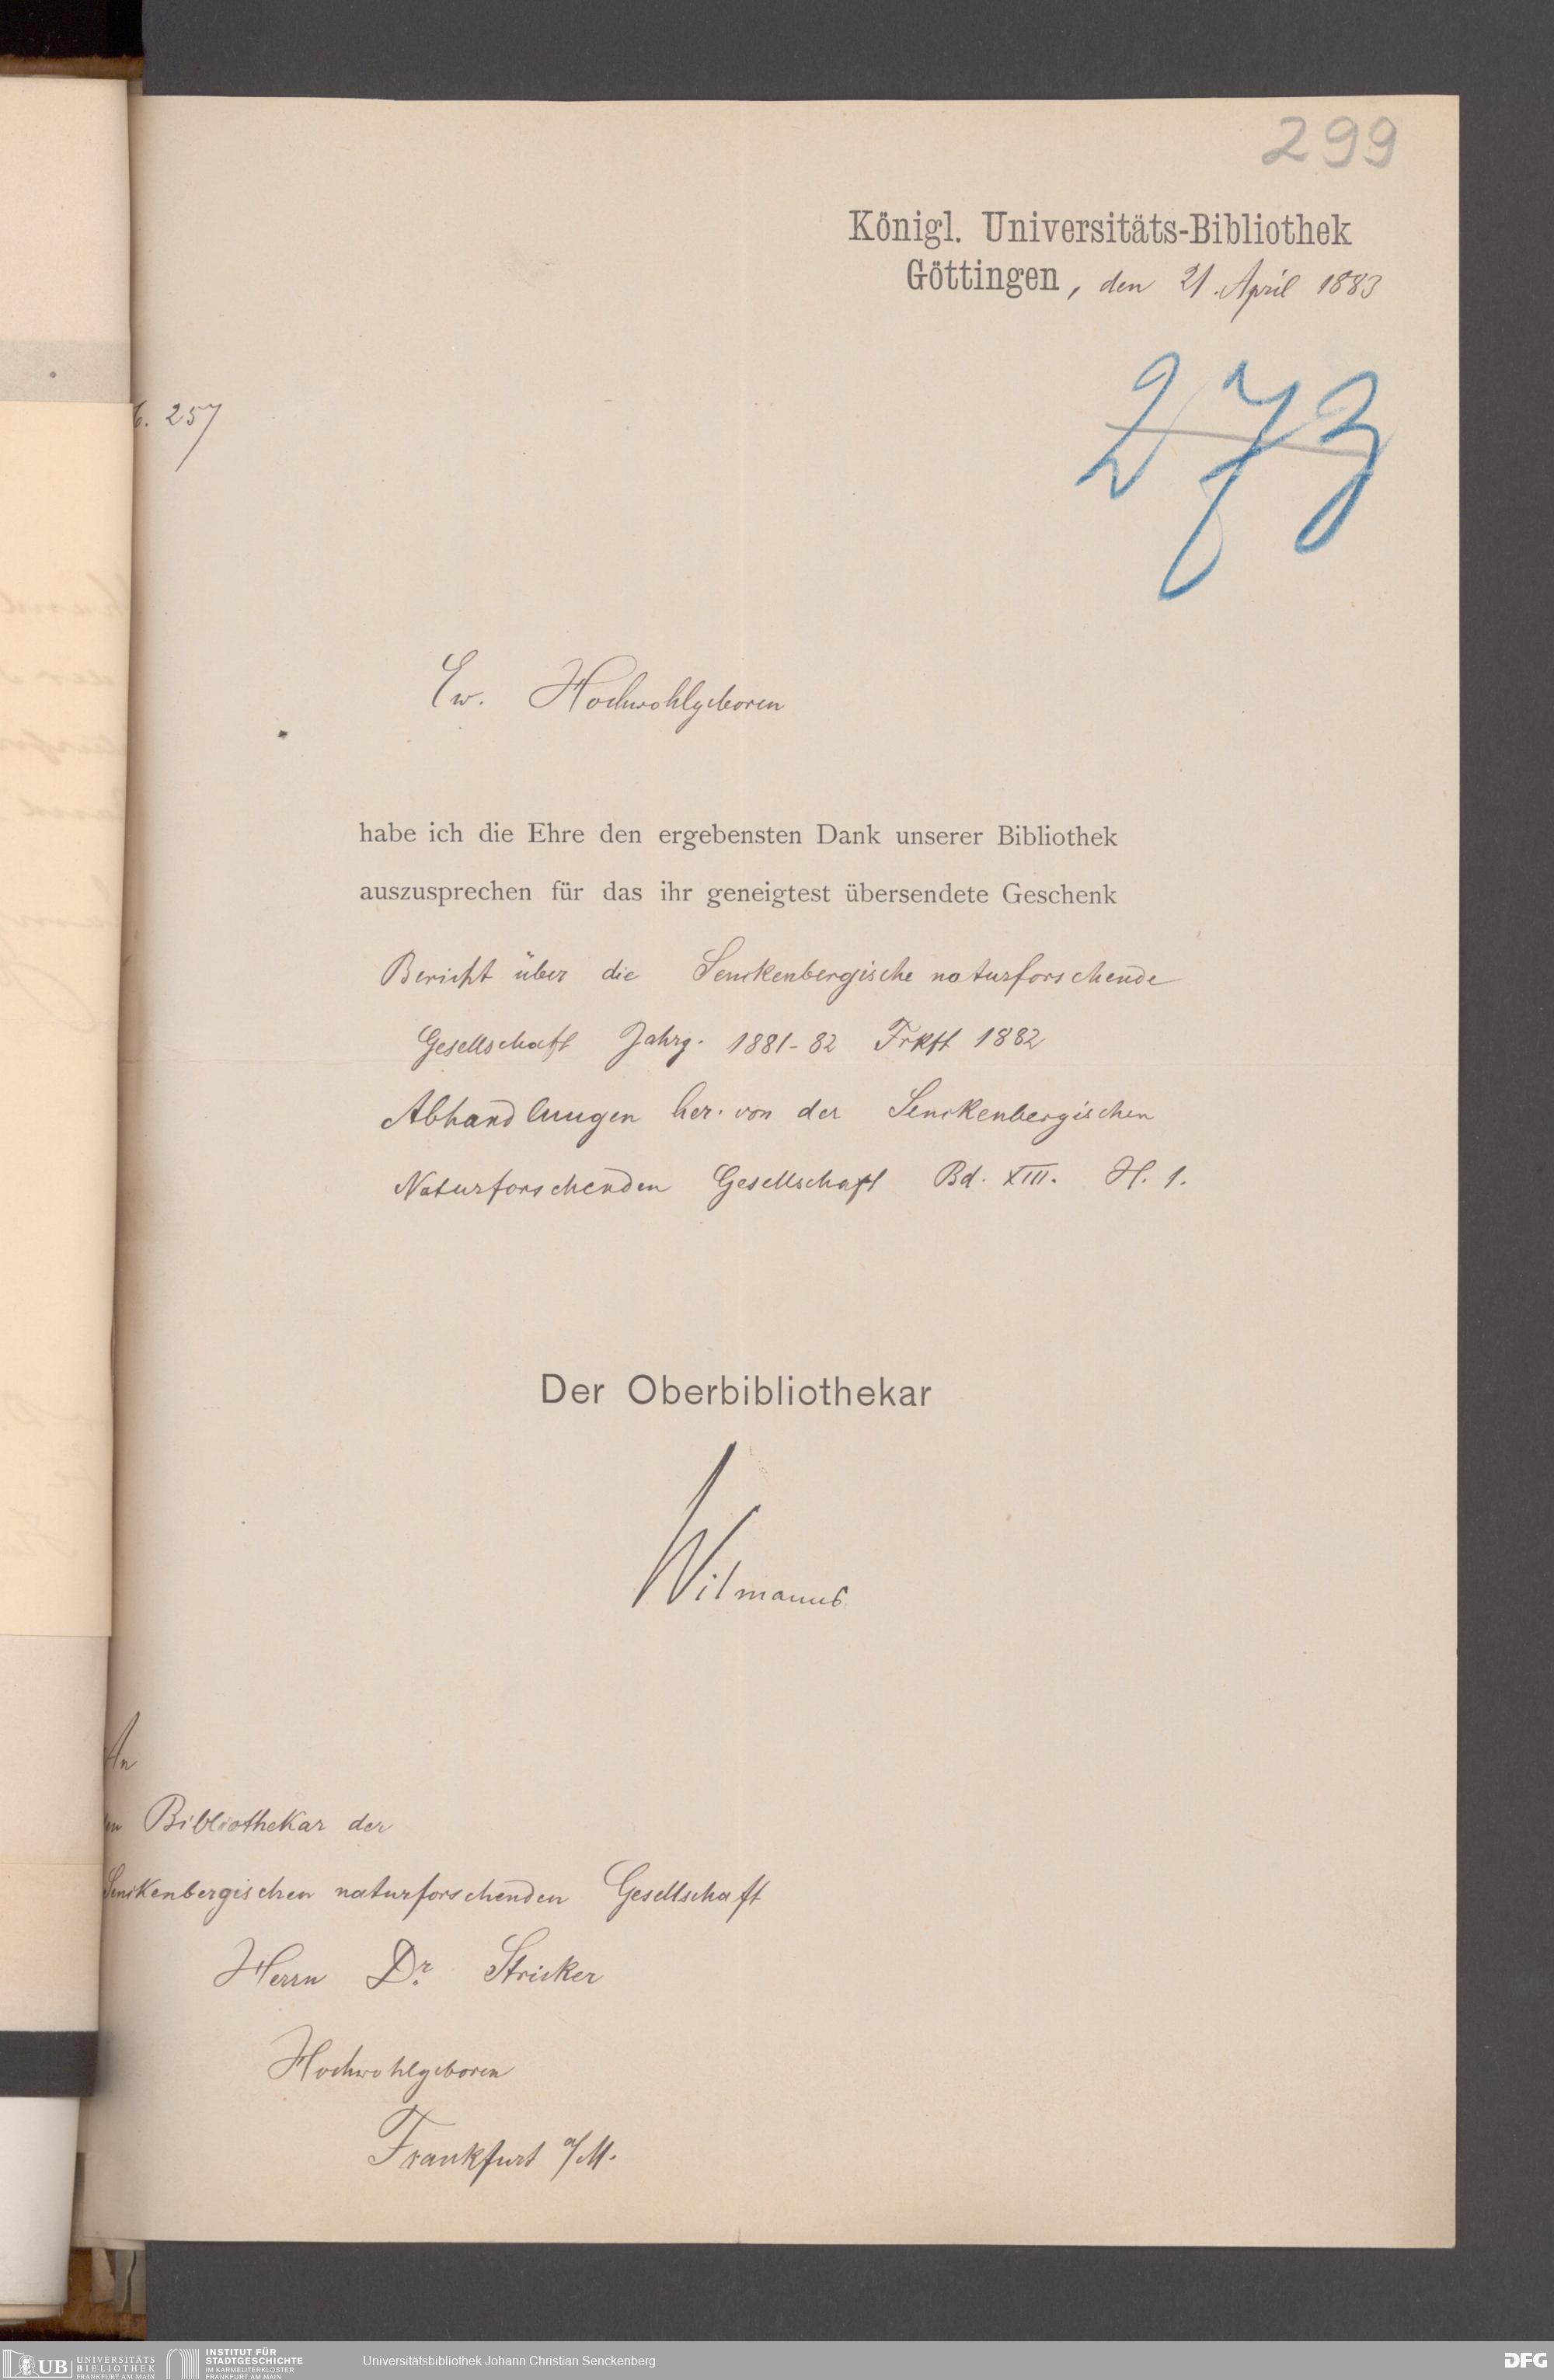 299
Königl. Universitäts-Bibliothek
Göttingen, den 21. April 1883
273
6. 257
Ew. Hochwohlgeboren
habe ich die Ehre den ergebensten Dank unserer Bibliothek
auszusprechen für das ihr geneigtest übersendete Geschenk
Bericht über die Senckenbergische naturforschende
Gesellschaft Jahrg. 1881-82 Frkft 1882
Abhandlungen her. von der Senckenbergischen
Naturforschenden Gesellschaft Bd. XIII. H. 1.
Der Oberbibliothekar
Wilmanns
An
en Bibliothekar der
Senckenbergischen naturforschenden Gesellschaft
Herrn Dr. Stricker
Hochwohlgeboren
Frankfurt a/M.
UB UNIVERSITÄTS BIBLIOTHEK FRANKFURT AM MAIN
INSTITUT FÜR STADTGESCHICHTE IM KARMELITERKLOSTER FRANKFURT AM MAIN
Universitätsbibliothek Johann Christian Senckenberg
DFG